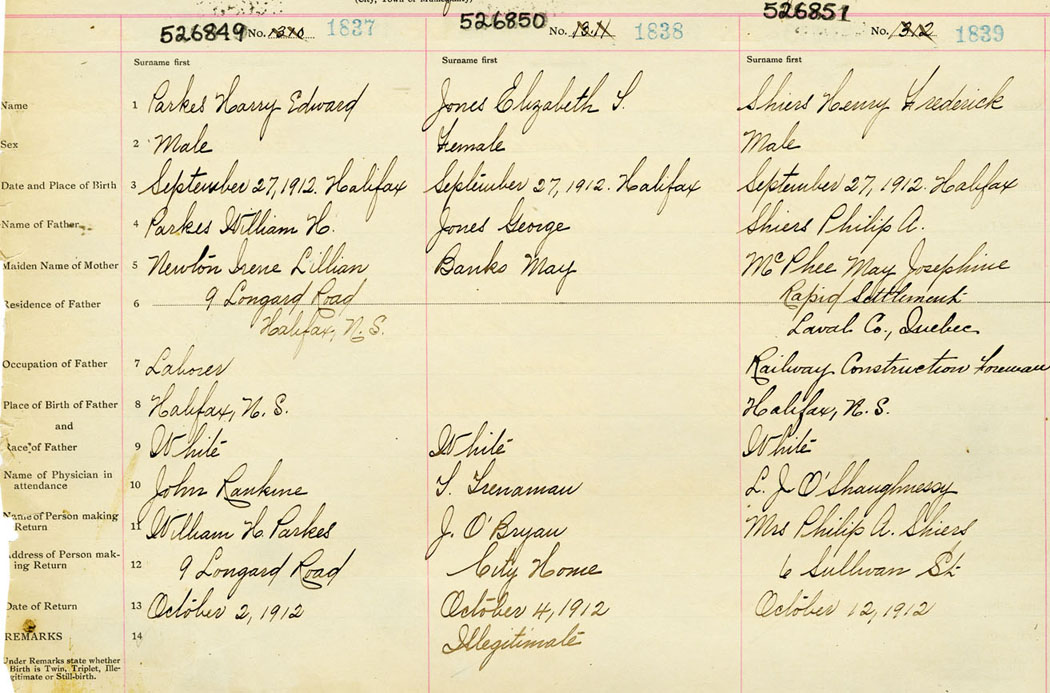 (City, Town or Municipality)
526849 No. 1310 1837 526850 No. 1311 1838 526851 No. 1312 1839
Surname first Surname first Surname first
Name 1 Parkes Harry Edward Jones Elizabeth S. Shiers Henry Frederick
Sex 2 Male Female Male
Date and Place of Birth 3 September 27, 1912. Halifax September 27, 1912. Halifax September 27, 1912. Halifax
Name of Father 4 Parkes William H. Jones George Shiers Philip A.
Maiden Name of Mother 5 Newton Irene Lillian Banks May McPhee May Josephine
Residence of Father 6 9 Longard Road Rapid Settlement
Halifax, N.S. Laval Co., Quebec
Occupation of Father 7 Laborer Railway Construction Foreman
Place of Birth of Father 8 Halifax, N.S. Halifax, N.S.
and
Race of Father 9 White White White
Name of Physician in
attendance 10 John Rankine S. Trenaman L. J. O'Shaughnessy
Name of Person making
Return 11 William H. Parkes J. O'Bryan Mrs Philip A. Shiers
Address of Person mak-
ing Return 12 9 Longard Road City Home 6 Sullivan St
Date of Return 13 October 2, 1912 October 4, 1912 October 12, 1912
REMARKS 14 Illegitimate
Under Remarks state whether
Birth is Twin, Triplet, Ille-
gitimate or Still-birth.